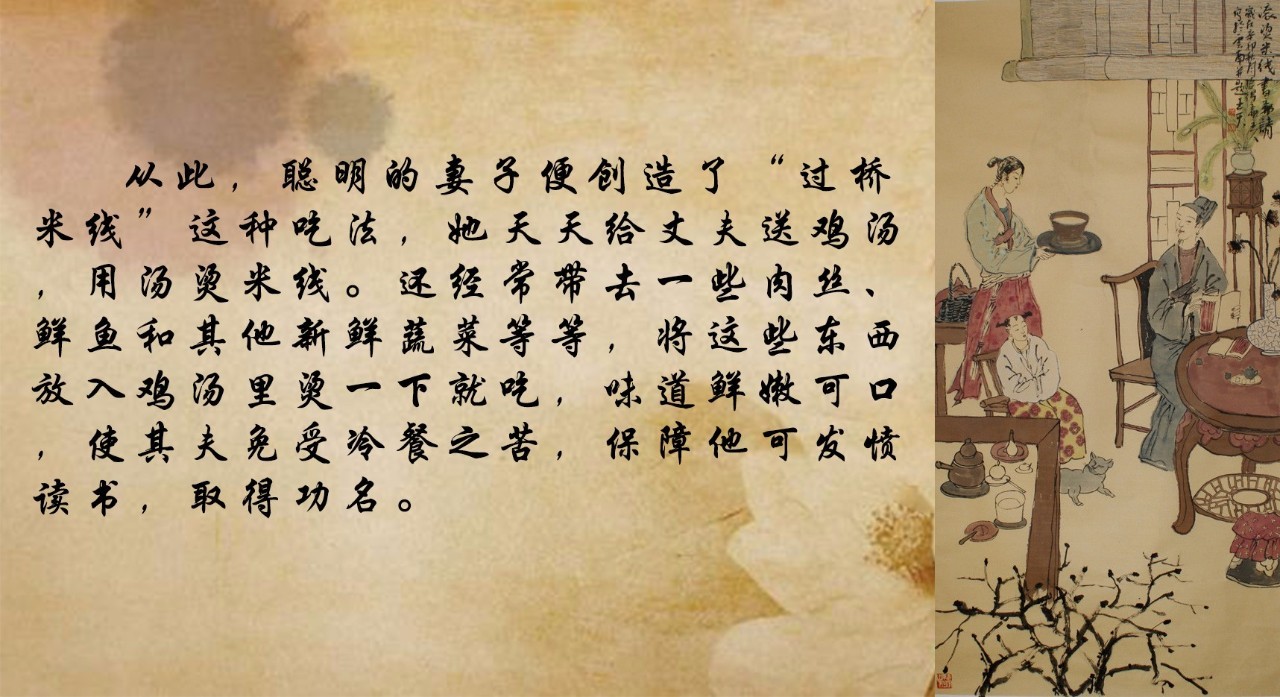 从此，聪明的妻子便创造了“过桥
米线”这种吃法，她天天给丈夫送鸡汤
，用汤烫米线。还经常带去一些肉丝、
鲜鱼和其他新鲜蔬菜等等，将这些东西
放入鸡汤里烫一下就吃，味道鲜嫩可口
，使其夫免受冷餐之苦，保障他可发愤
读书，取得功名。
滚烫米线书郎讀